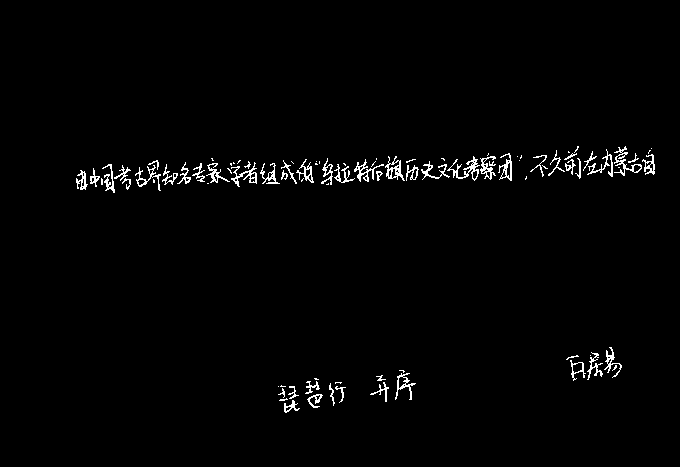 由中国考古界知名专家学者组成的“乌拉特后旗历史文化考察团”,不久前在内蒙古自
白居易
琵琶行 并序